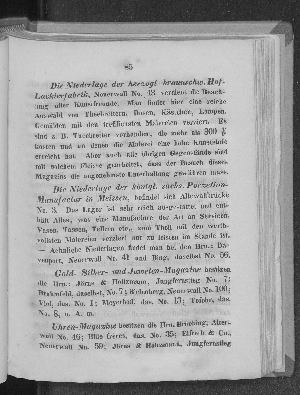 85
Die Niederlage der herzogl. braunschw. Hof-
Lackierfabrik, Neuerwall No. 43 verdient die Beach-
tung aller Kunstfreunde. Man findet hier eine reiche
Auswahl von Theebrettern, Dosen, Kästchen, Lampen,
Gemälden mit den trefflichsten Malereien verziert. Es
sind z. B. Theebretter vorhanden, die mehr als 300
kosten und an denen die Malerei eine hohe Kunststufe
erreicht hat. Aber auch alle übrigen Gegenstände sind
mit solchem Fleisse gearbeitet, dass der Besuch dieses
Magazins die angenehmste Unterhaltung gewähren muss.
Die Niederlage der königl. sächs. Porzellan-
Manufactur in Meissen, befindet sich Altewallbrücke
No. 3. Das Lager ist sehr reich ausgestattet und ent-
hält Alles, was eine Manufactur der Art an Servicen,
Vasen, Tassen, Tellern etc., zum Theil mit den werth-
vollsten Malereien verziert nur zu leisten im Stande ist.
— Aehnliche Niederlagen findet man bei den Hrn.: Da-
venport, Neuerwall No. 41 und Bing, daselbst No. 56.
Gold- Silber- und Juwelen-Magazine besitzen
die Hrn.: Jörns & Holtzmann, Jungfernstieg No. 7;
Brahmfeld, daselbst, No. 7; Neuerwall No. 100;
daselbst No. 1; Meyerhoff, das. No. 13; das.
No. 8, u. A. m.
Uhren-Magazine besitzen die Hrn. Bröcking, Alter-
wall No. 46; frères, das. No. 35; & Co.,
Neuerwall No. 59; Jörns & Holtzmann, Jungfernstieg